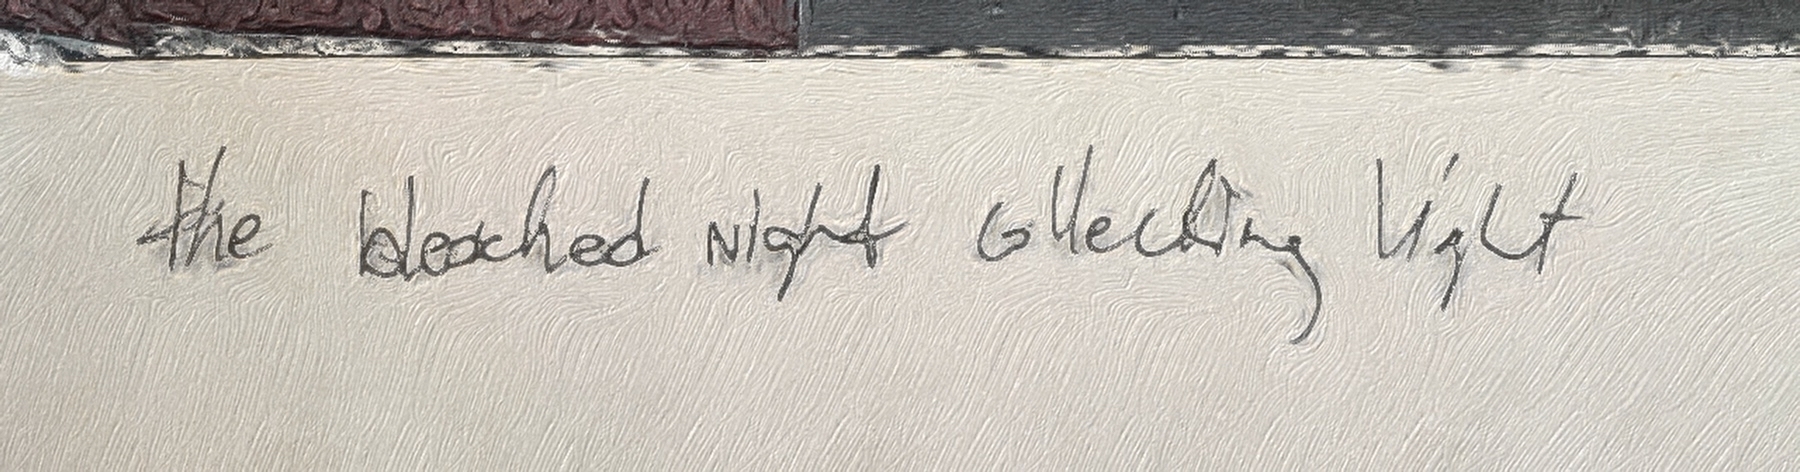 the bleached night collecting light